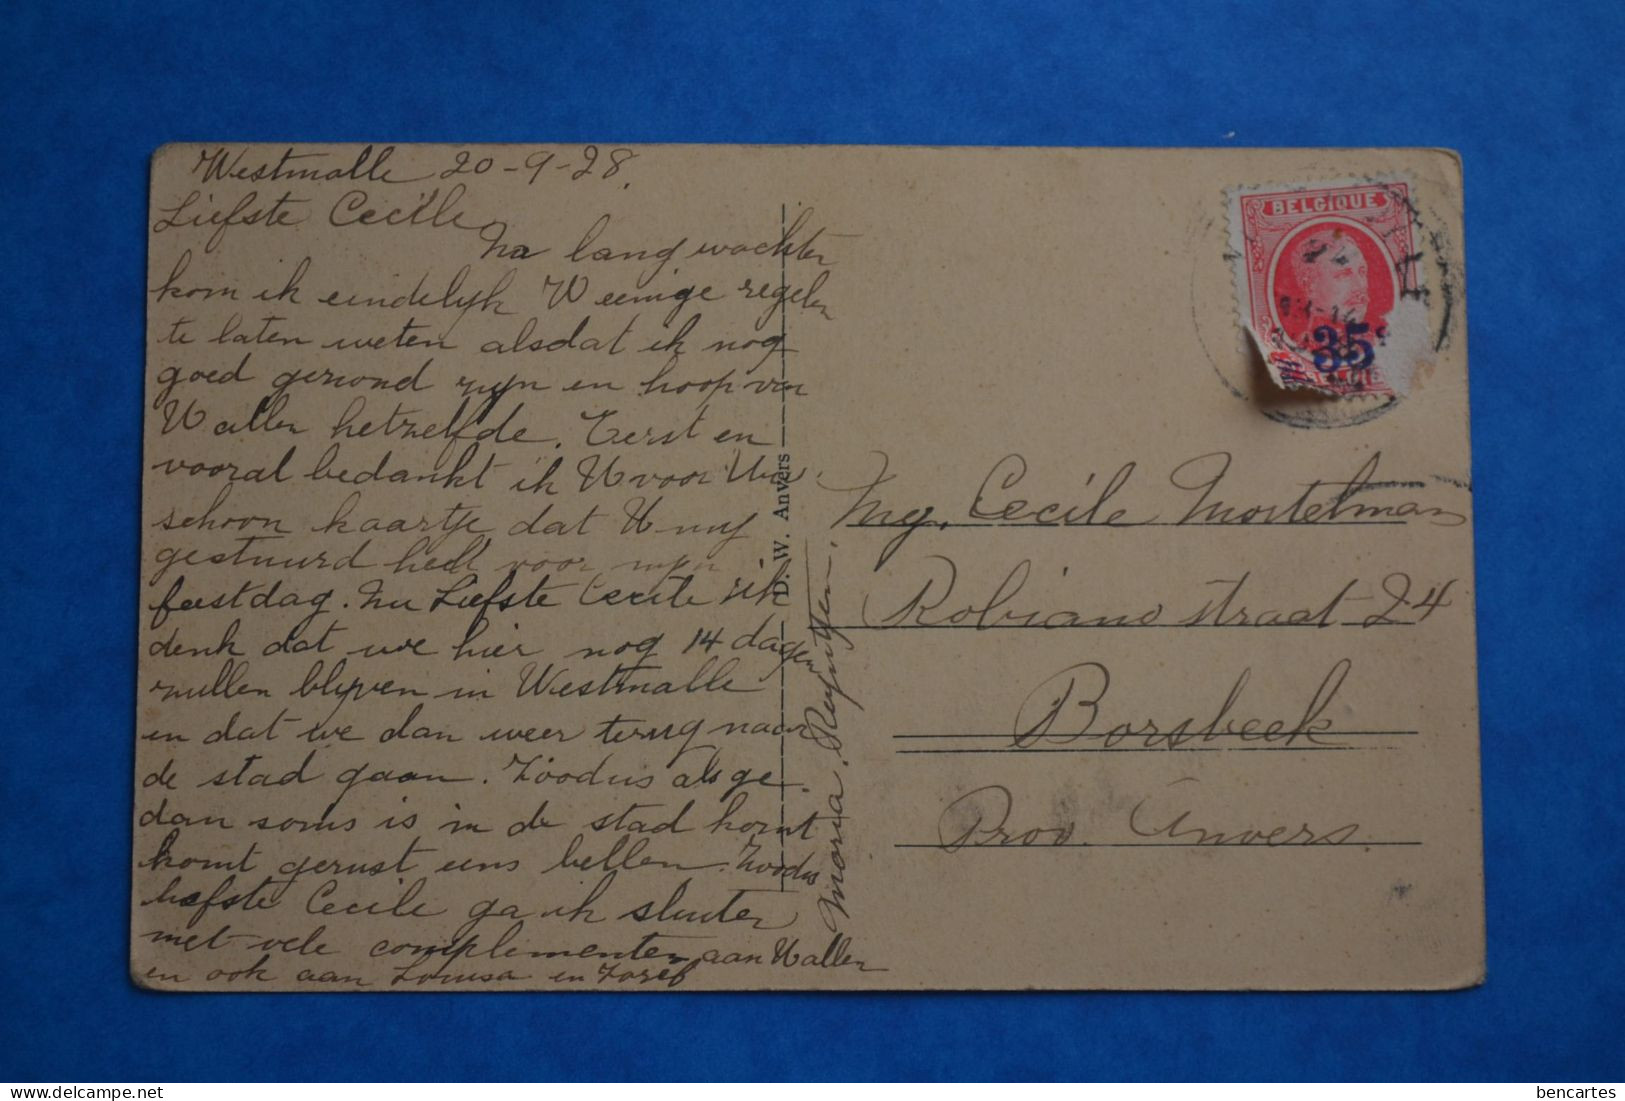 Westmalle 20-9-28.
Liefste Cecile
Na lang wachten
kom ik eindelijk U eenige regelen
te laten weten alsdat ik nog
goed gezond zijn en hoop van
U allen hetzelfde. Eerst en
vooral bedankt ik U voor Uw
schoon kaartje dat U mij
gestuurd hebt voor mijn
feestdag. Nu Liefste Cecile ik
denk dat we hier nog 14 dagen
zullen blijven in Westmalle
en dat we dan weer terug naar
de stad gaan. Zoodus als ge
dan soms is in de stad komt
komt gerust eens bellen. Zoodus
liefste Cecile ga ik sluiten
met vele complementen aan U allen
en ook aan Louisa en Jozef
Maria Reyntjen.
D. W. Anvers
BELGIQUE
35
Mej. Cecile Mortelmans
Robiano straat 24
Borsbeek
Prov. Anvers.
bencartes